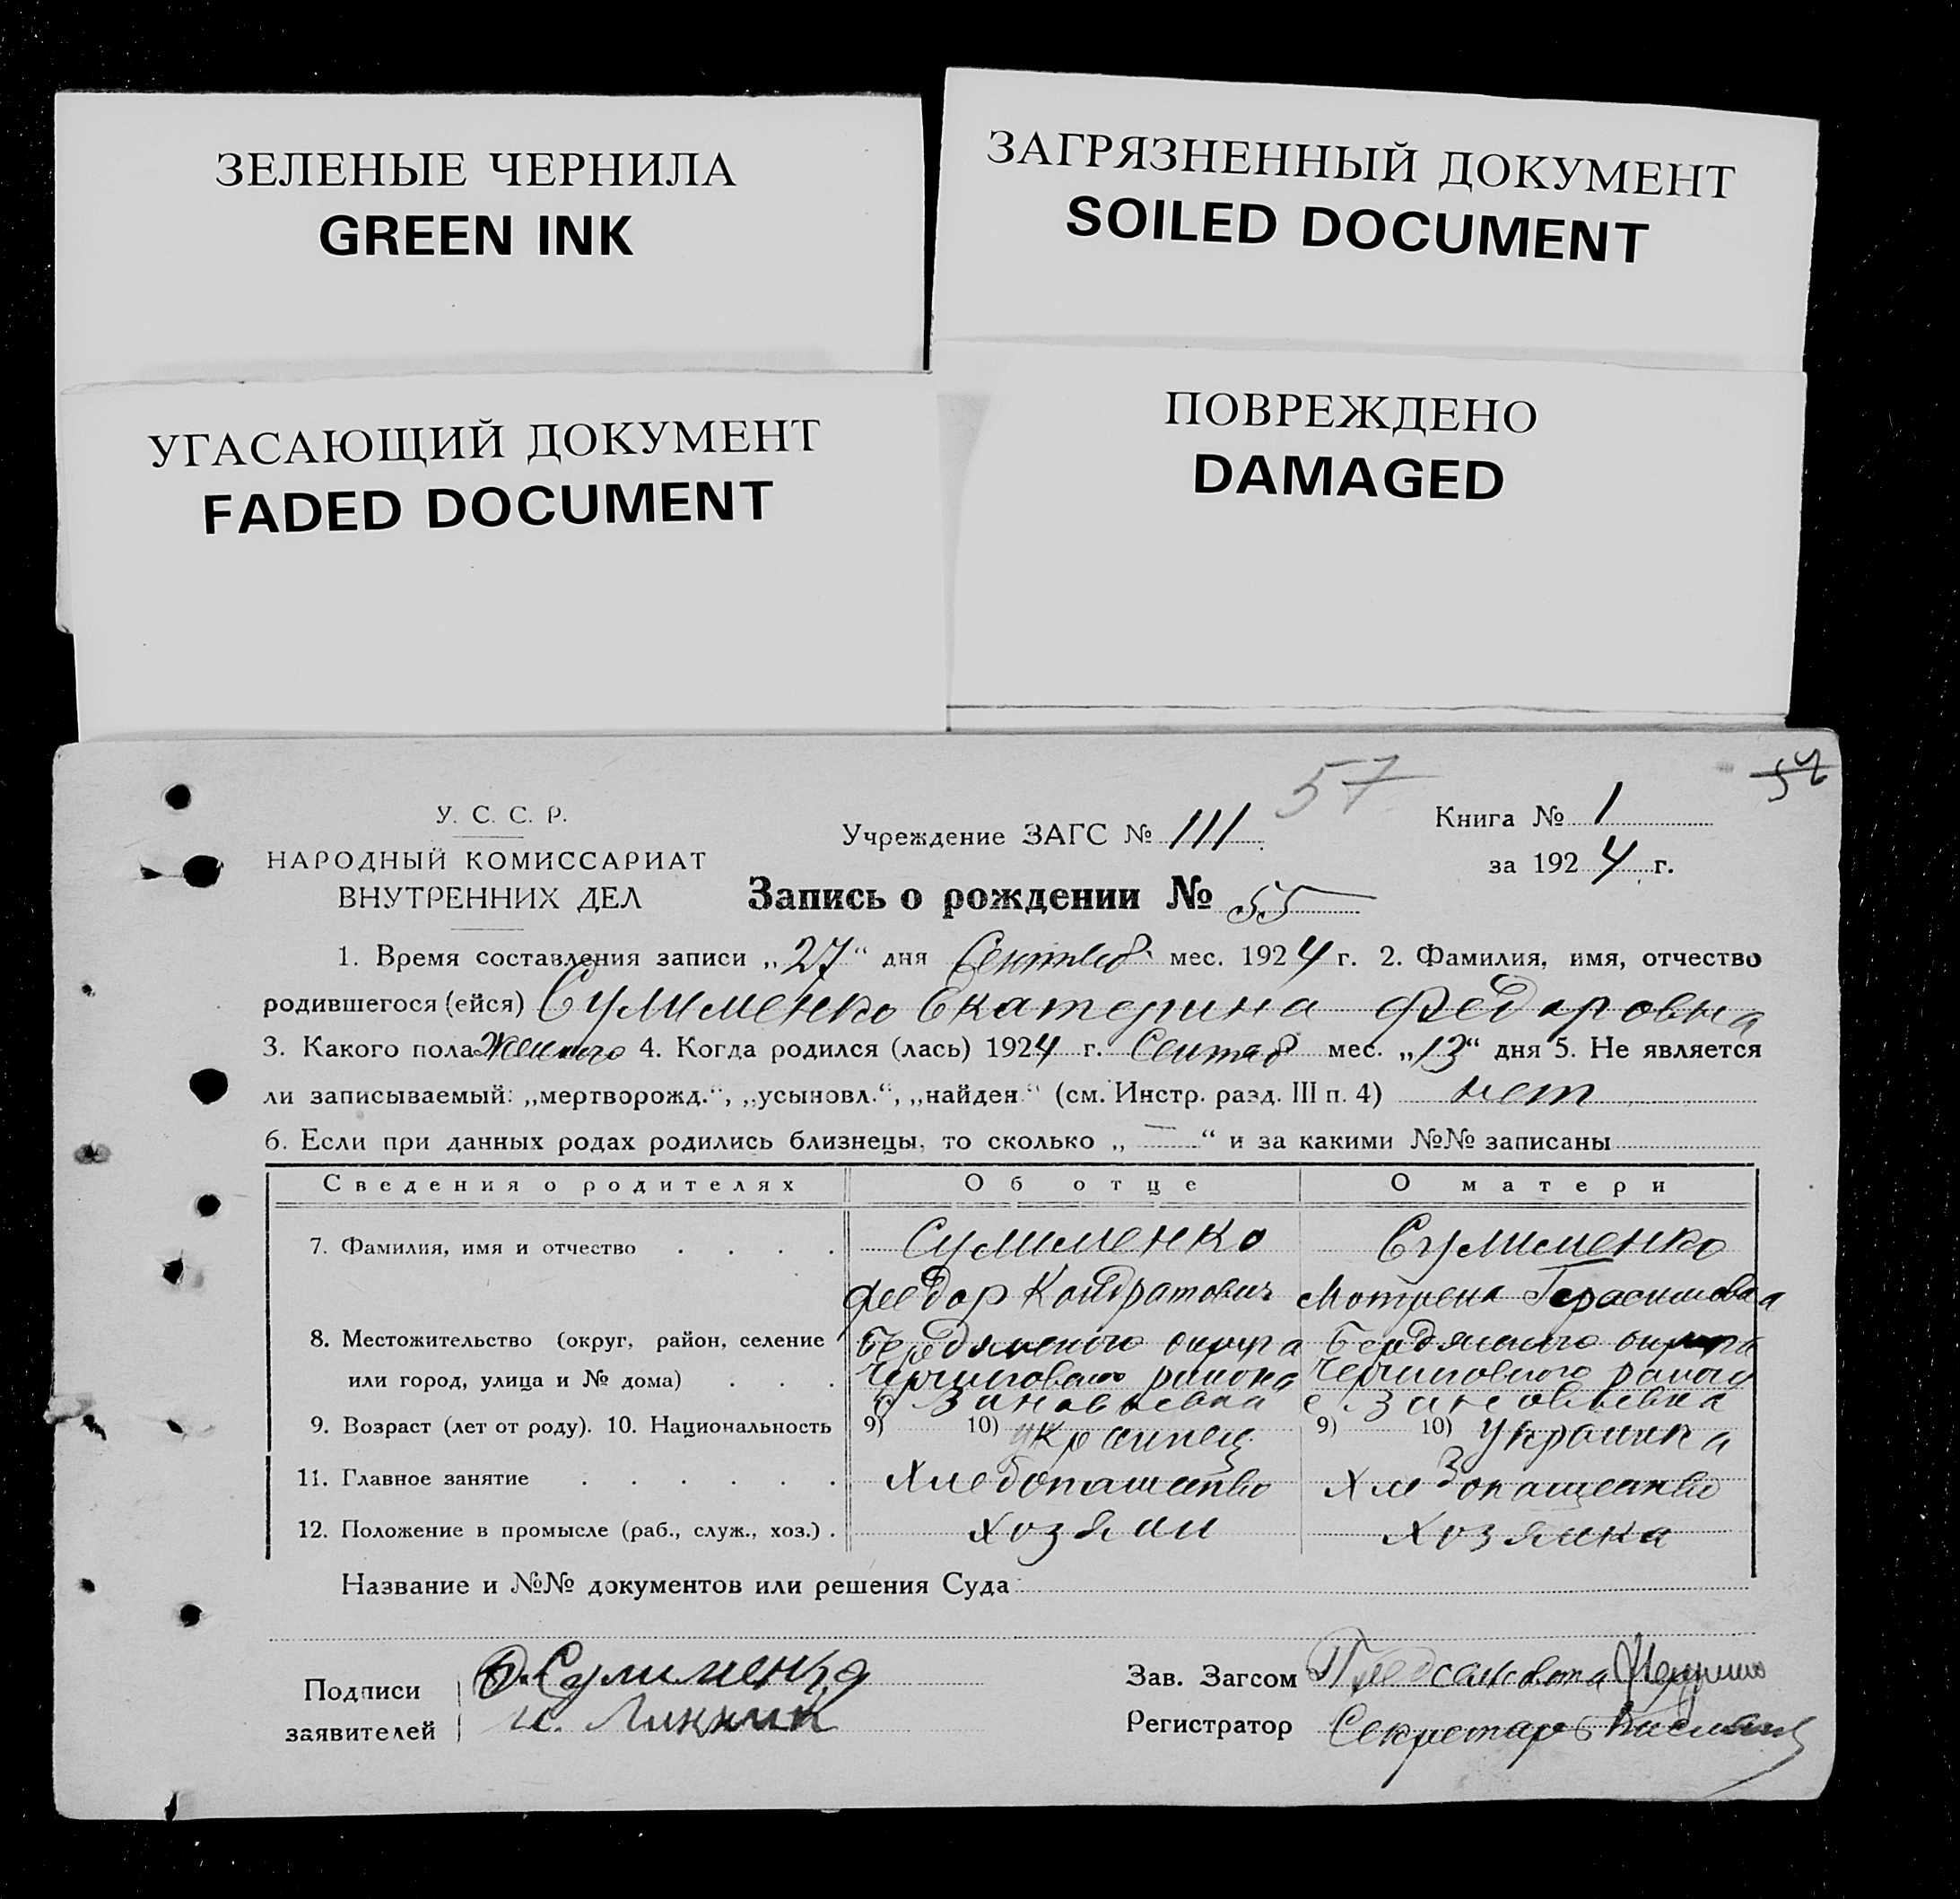 ЗЕЛЕНЫЕ ЧЕРНИЛА
GREEN INK
ЗАГРЯЗНЕННЫЙ ДОКУМЕНТ
SOILED DOCUMENT
УГАСАЮЩИЙ ДОКУМЕНТ
FADED DOCUMENT
ПОВРЕЖДЕНО
DAMAGED
57
У. С. С. Р.
НАРОДНЫЙ КОМИССАРИАТ
ВНУТРЕННИХ ДЕЛ
Учреждение ЗАГС № 111
Книга № 1
за 1924 г.
Запись о рождении № 55
1. Время составления записи „27“ дня Сентяб. мес. 1924 г. 2. Фамилия, имя, отчество
родившегося (ейся) Сулименко Екатерина Федоровна
3. Какого пола Женского 4. Когда родился (лась) 1924 г. Сентяб мес. „13“ дня 5. Не является
ли записываемый: „мертворожд.“, „усыновл.“, „найден“ (см. Инстр. разд. III п. 4) нет
6. Если при данных родах родились близнецы, то сколько „—“ и за какими №№ записаны
Сведения о родителях Об отце О матери
7. Фамилия, имя и отчество Сулименко Сулименко
Феодор Кондратович Мотрена Герасимовна
8. Местожительство (округ, район, селение Бердянского округа Бердянского округа
или город, улица и № дома) Черниговского района Черниговского района
с Зиновьевка с Зиновьевка
9. Возраст (лет от роду). 10. Национальность 9) 10) украинец 9) 10) Украинка
11. Главное занятие Хлебопашество Хлебопашество
12. Положение в промысле (раб., служ., хоз.) Хозяин Хозяйка
Название и №№ документов или решения Суда
Подписи
заявителей
Ф. Сулименко
И. Линник
Зав. Загсом Предсельсовета
Регистратор Секретарь